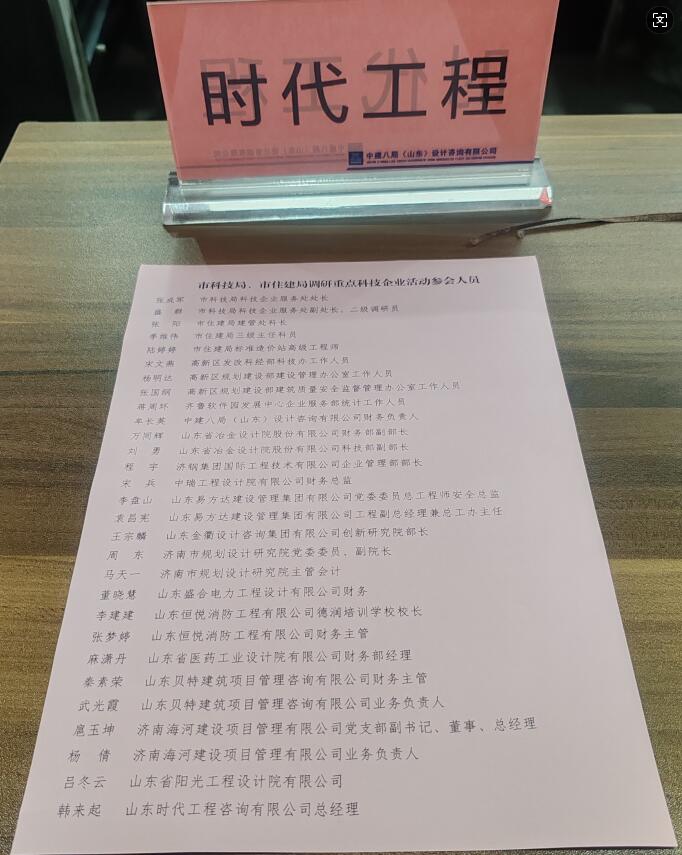 时代工程
中建八局（山东）设计咨询有限公司
市科技局、市住建局调研重点科技企业活动参会人员
张成军 市科技局科技企业服务处处长
盛 群 市科技局科技企业服务处副处长、二级调研员
张 阳 市住建局建管处科长
李维伟 市住建局三级主任科员
陆婷婷 市住建局标准造价站高级工程师
宋文燕 高新区发改科经部科技办工作人员
杨明达 高新区规划建设部建设管理办公室工作人员
张国纲 高新区规划建设部建筑质量安全监督管理办公室工作人员
蒋周环 齐鲁软件园发展中心企业服务部统计工作人员
牟长英 中建八局（山东）设计咨询有限公司财务负责人
万同辉 山东省冶金设计院股份有限公司财务部副部长
刘 勇 山东省冶金设计院股份有限公司科技部副部长
程 宇 济钢集团国际工程技术有限公司企业管理部部长
宋 兵 中瑞工程设计院有限公司财务总监
李盘山 山东易方达建设管理集团有限公司党委委员总工程师安全总监
袁昌宪 山东易方达建设管理集团有限公司工程副总经理兼总工办主任
王宗麟 山东金衢设计咨询集团有限公司创新研究院部长
周 东 济南市规划设计研究院党委委员、副院长
马天一 济南市规划设计研究院主管会计
董晓慧 山东盛合电力工程设计有限公司财务
李建建 山东恒悦消防工程有限公司德润培训学校校长
张梦婷 山东恒悦消防工程有限公司财务主管
麻潇丹 山东省医药工业设计院有限公司财务部经理
秦素荣 山东贝特建筑项目管理咨询有限公司财务主管
武光霞 山东贝特建筑项目管理咨询有限公司业务负责人
扈玉坤 济南海河建设项目管理有限公司党支部副书记、董事、总经理
杨 倩 济南海河建设项目管理有限公司业务负责人
吕冬云 山东省阳光工程设计院有限公司
韩来起 山东时代工程咨询有限公司总经理